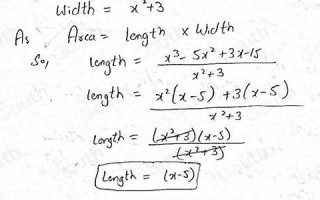 Width = x²+3
As Area = length × Width
So, length = x³- 5x² +3x-15 / x²+3
length = x²(x-5) +3(x-5) / x²+3
Length = (x²+3)(x-5) / (x²+3)
Length = (x-5)